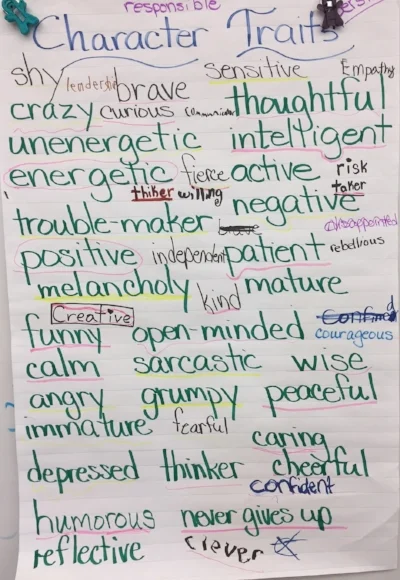 responsible
Character Traits
shy leadership brave sensitive Empathy
crazy curious thoughtful
unenergetic intelligent
energetic fierce active risk taker
thiker willing
trouble-maker negative
disappointed
positive independent patient rebellious
melancholy kind mature
Creative
funny open-minded Confined
courageous
calm sarcastic wise
angry grumpy peaceful
immature fearful
caring
depressed thinker cheerful
confident
humorous never gives up
reflective clever